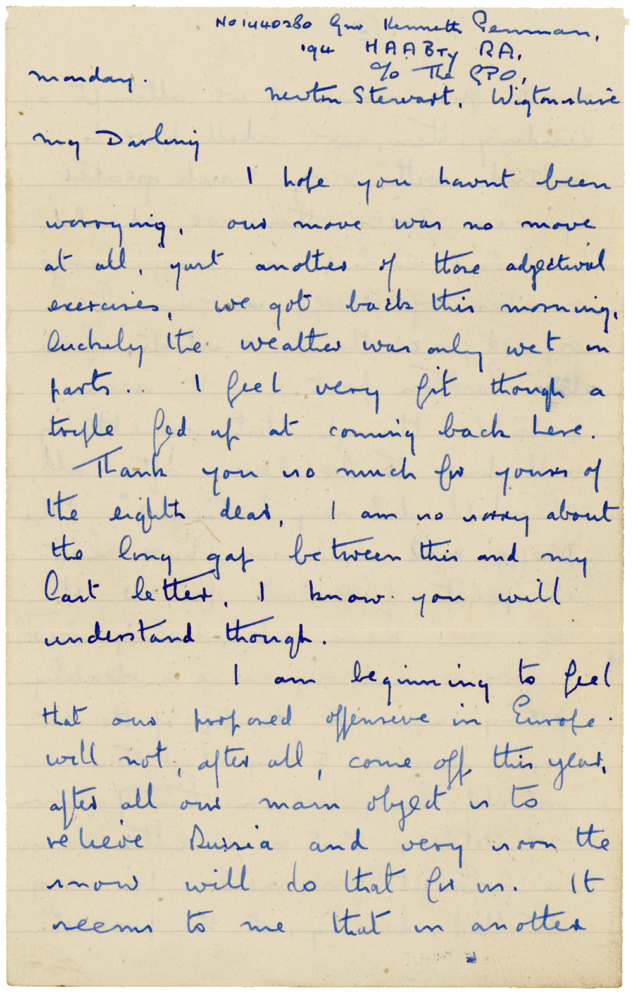 No 1440280 Gnr Kenneth Penman,
194 HAA Bty RA,
c/o The GPO,
Monday.
Newton Stewart, Wigtonshire
My Darling
I hope you havnt been
worrying, our move was no move
at all, just another of those adjectival
exercises, we got back this morning,
luckely the weather was only wet in
parts. I feel very fit though a
trifle fed up at coming back here.
Thank you so much for yours of
the eighth dear, I am so sorry about
the long gap between this and my
last letter, I know you will
understand though.
I am beginning to feel
that our proposed offensive in Europe
will not, after all, come off this year,
after all our main object is to
relieve Russia and very soon the
snow will do that for us. It
seems to me that in another